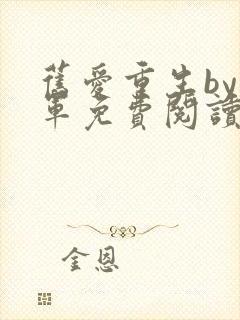 舊愛重生by
軍免費閱讀
金恩